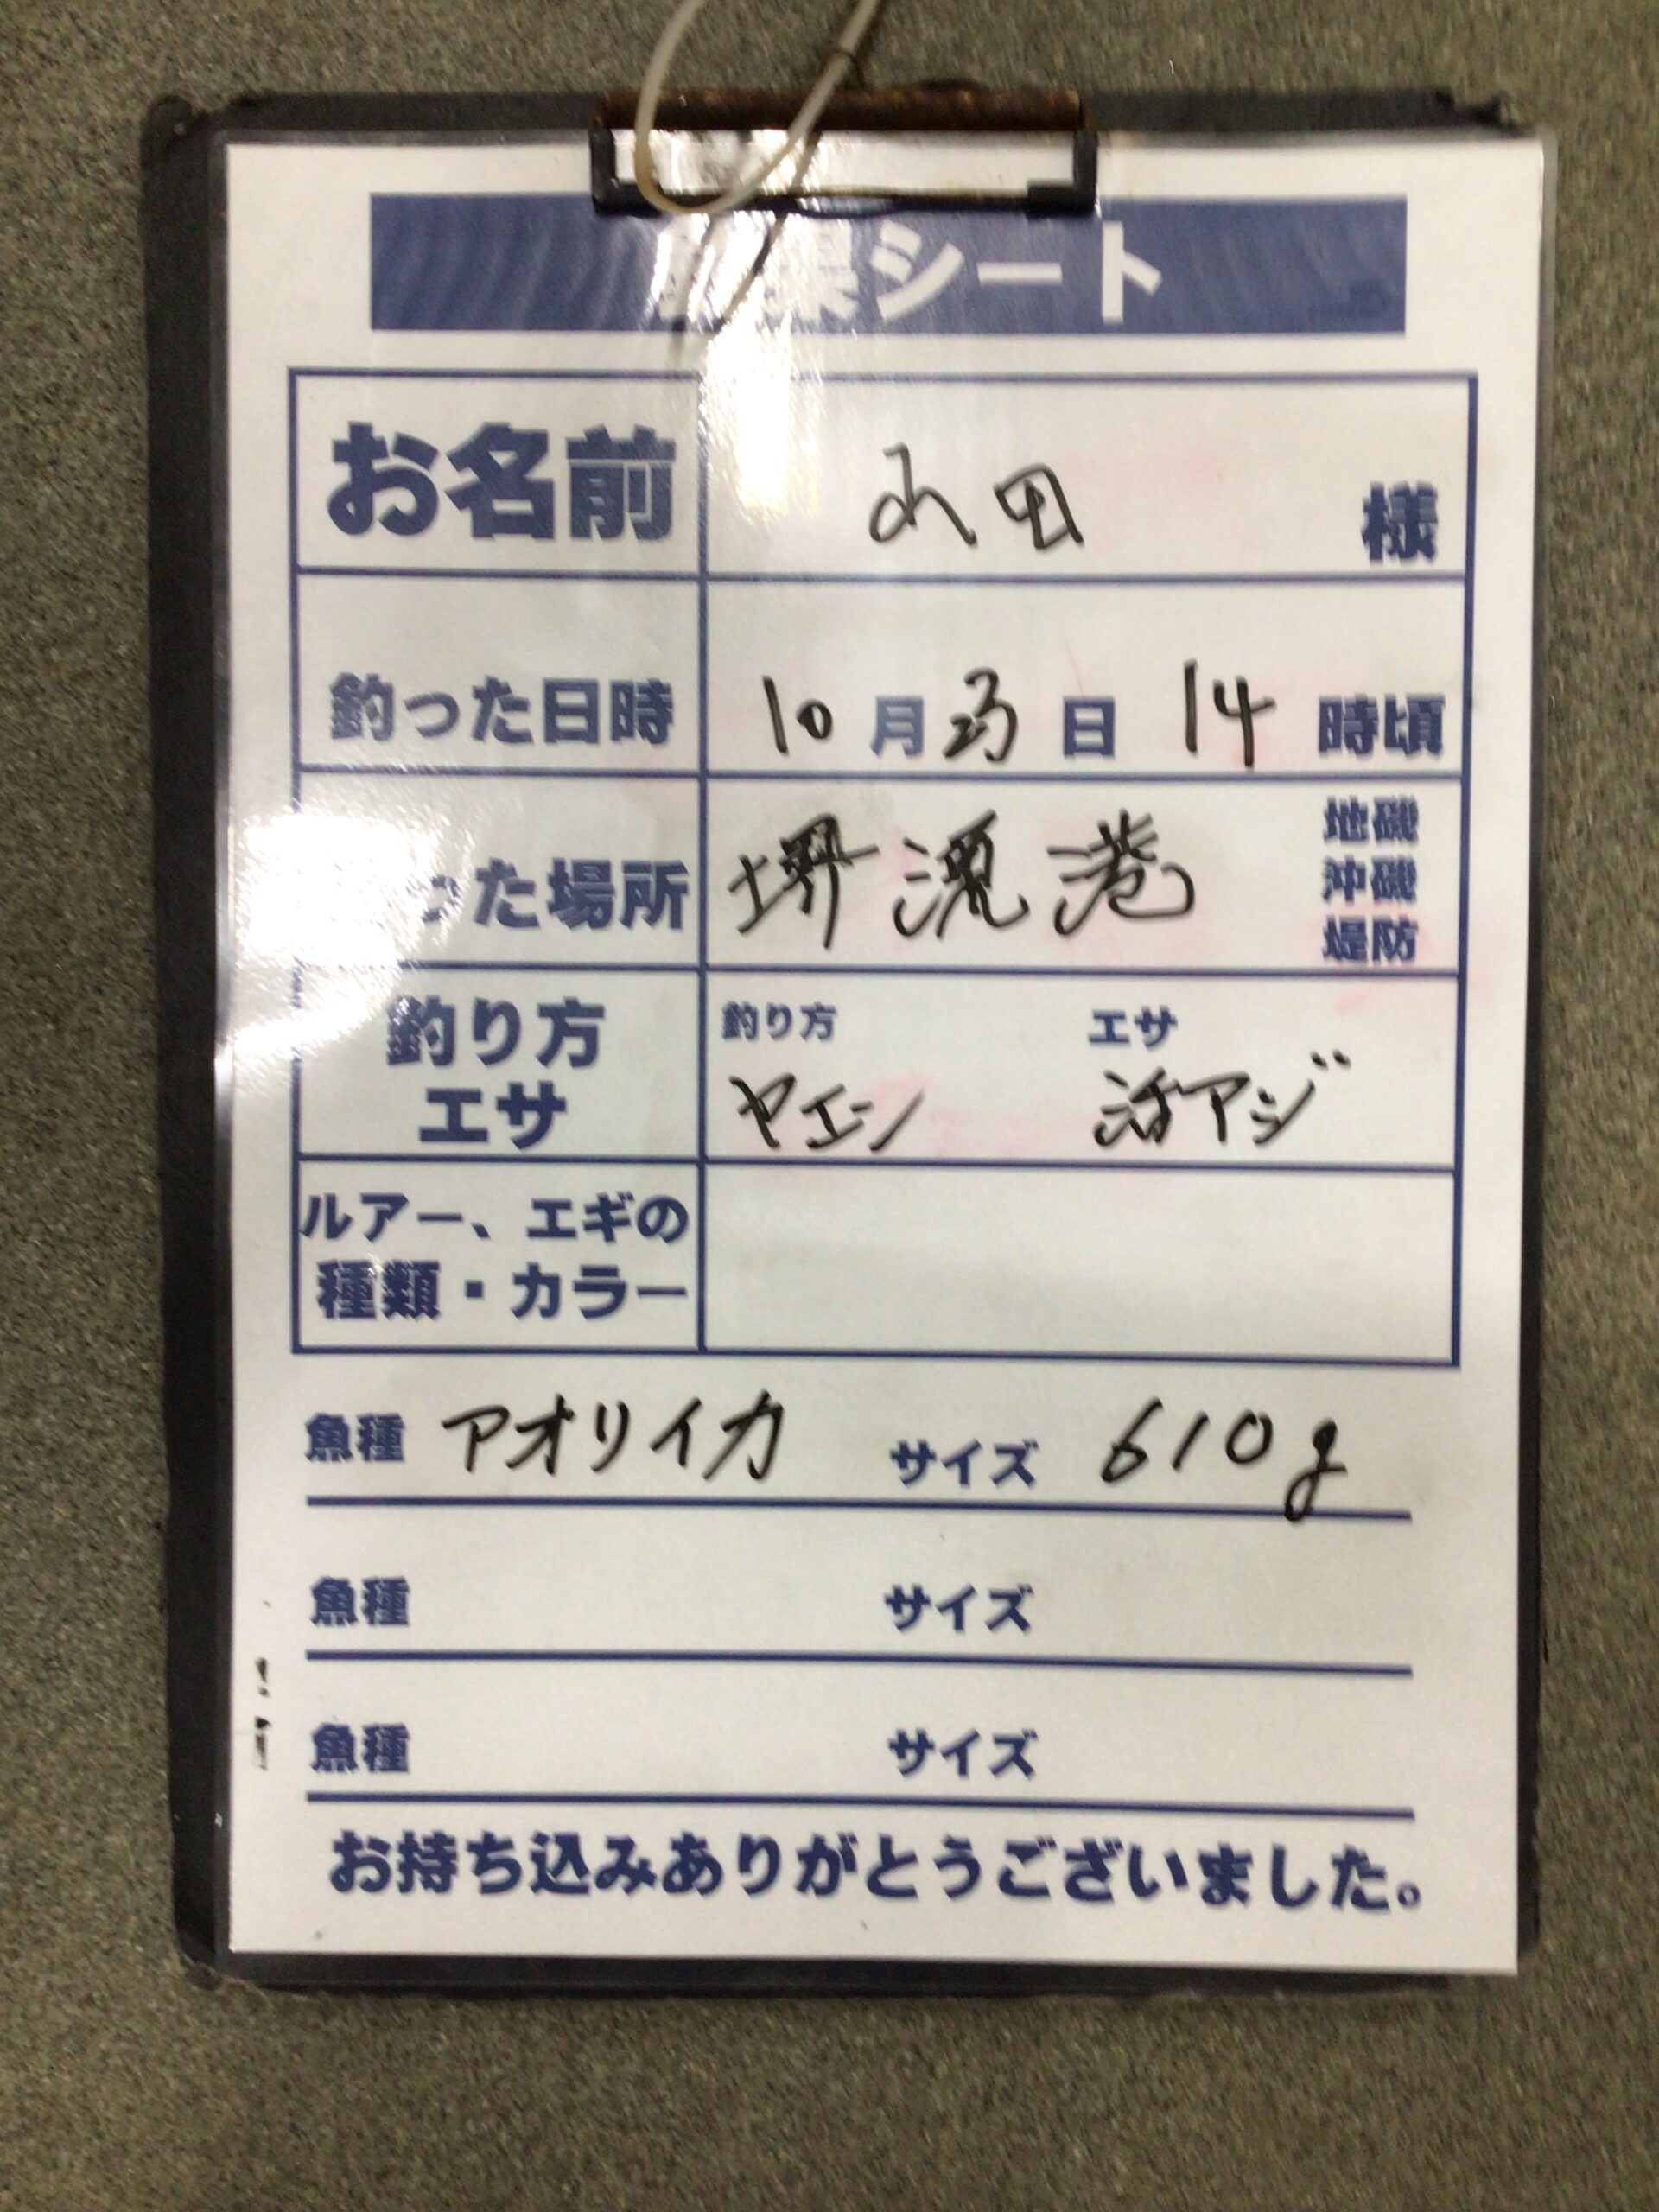 果シート
お名前 山田 様
釣った日時 10月23日 14時頃
った場所 堺漁港 地磯
沖磯
堤防
釣り方 エサ
釣り方 エサ
ヤエン 活アジ
ルアー、エギの
種類・カラー
魚種 アオリイカ サイズ 610g
魚種 サイズ
魚種 サイズ
お持ち込みありがとうございました。